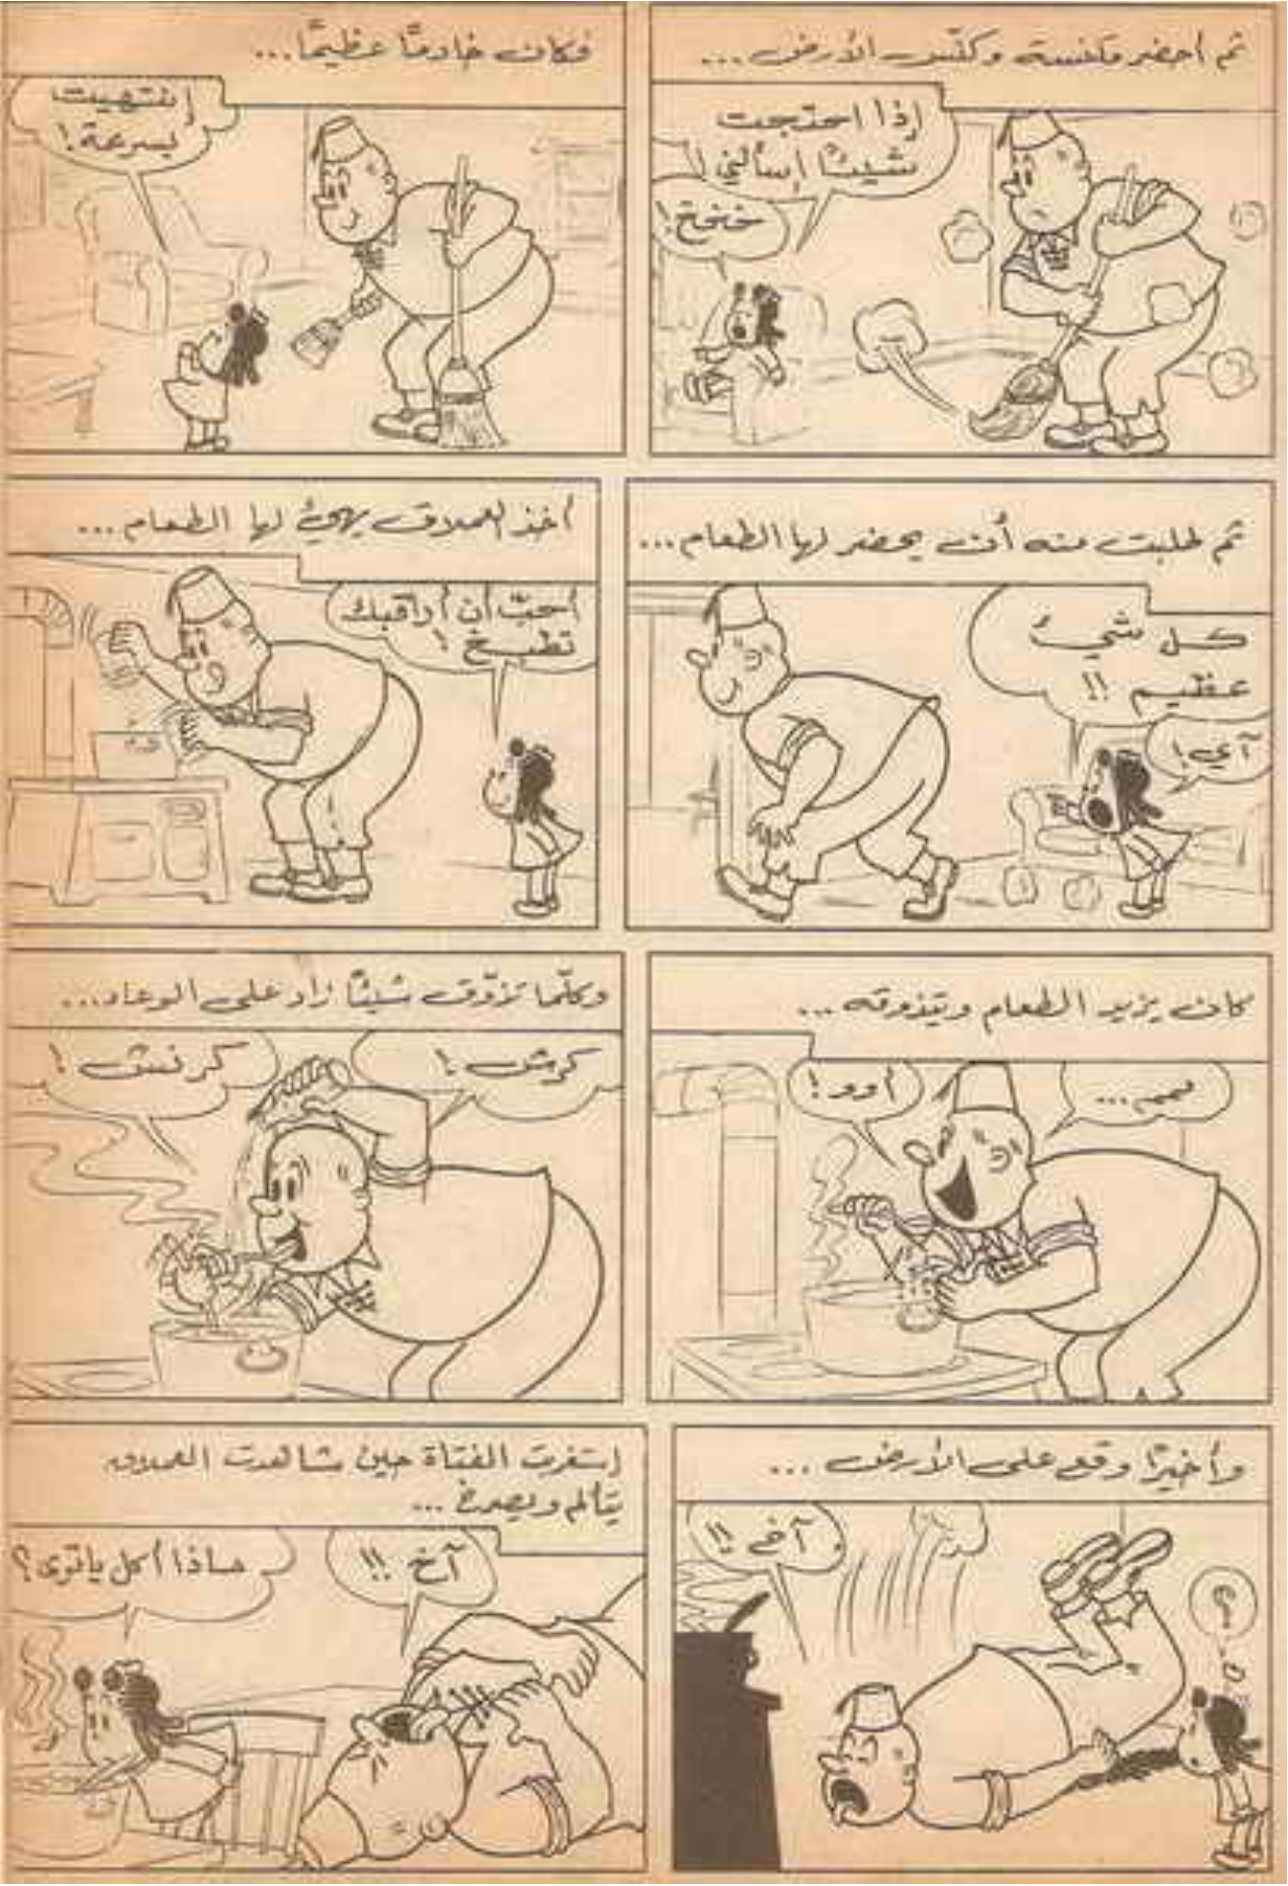 ثم أحضر مكنسة وكنّس الأرض...
إذا احتجت
شيئاً إسأليني!
خنخخ!
فكان خادماً عظيماً...
إنتهيت
بسرعة!
ثم طلبت منه أن يحضر لها الطعام...
كل شيءٍ
عظيم!!
آي!
أخذ العملاق يهيئ لها الطعام...
أحبّ أن أراقبك
تطبخ!
كان يزيد الطعام ويتذوقه...
ممم...
أوو!
وكلّما تذوّق شيئاً زاد على الوعاء...
كرش!
كرنش!
وأخيراً وقع على الأرض...
آخ!!
إستغربت الفتاة حين شاهدت العملاق
يتألم ويصرخ...
آخ!!
ماذا أكل يا ترى؟